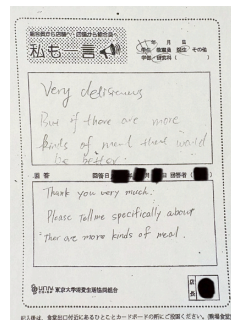 私も一言
年 月 日
学生 教職員 院生 その他
学部・研究科( )
Very delicious
But if there are more
kinds of meal there would
be better.
回答
回答日
回答者
Thank you very much.
Please tell me specifically about
"Ther are more kinds of meal.
店長
東京大学消費生活協同組合